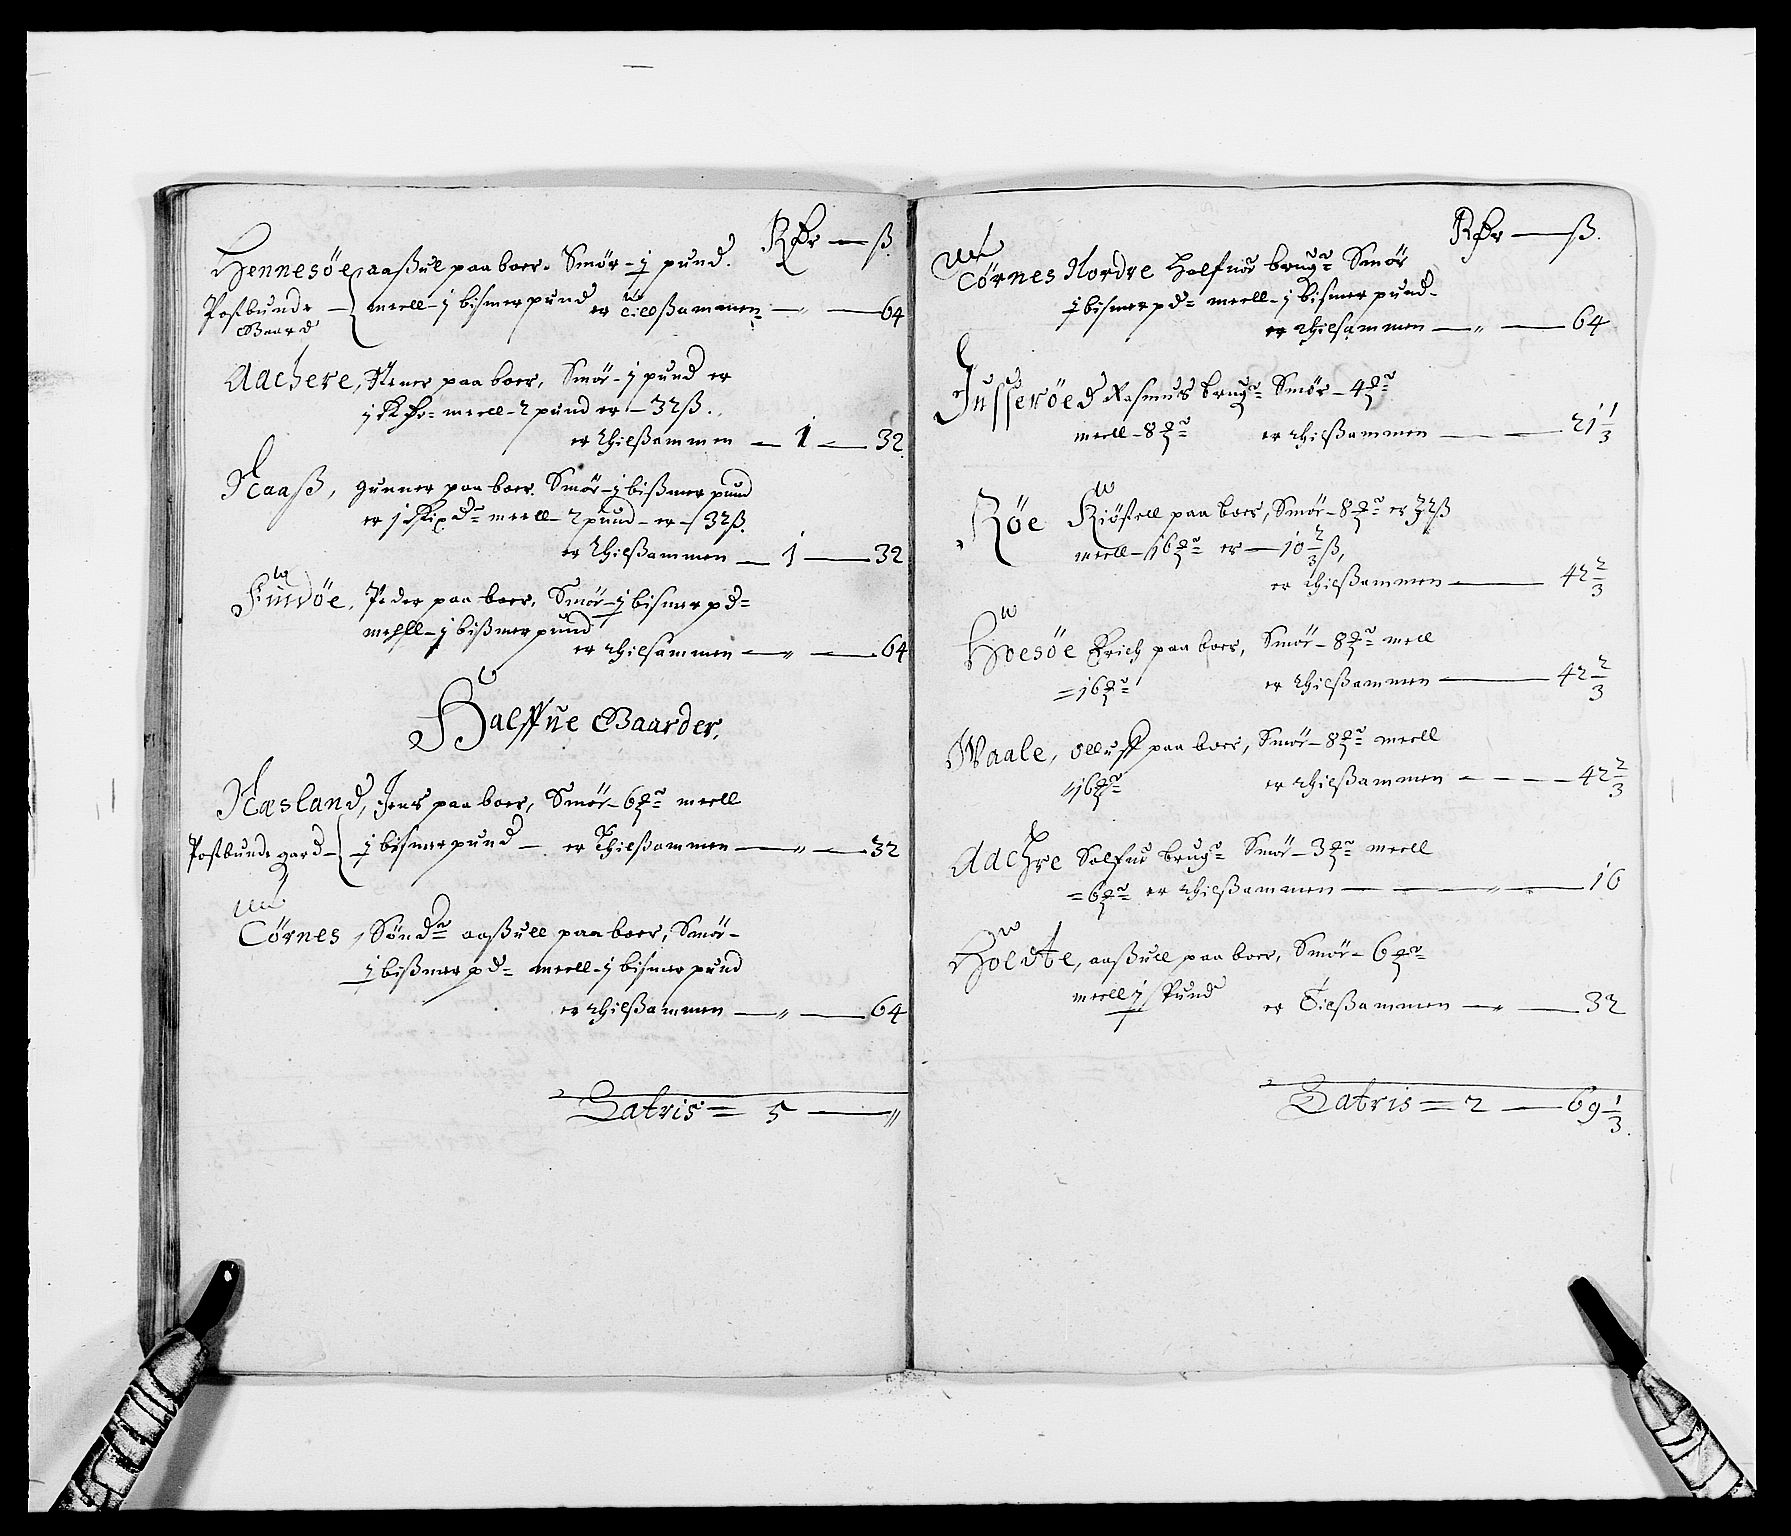 Rdr — ß.
Hennesöe, aaßul paa boer. Smør - ½ pund.
Postbunde meell - j bismerpund er tillßammen - " - 64
Gaard
Aachere, Stener paa boer, Smør - j pund er
j Rdr = meell - 2 pund er - 32 ß.
er thilßammen - 1 - 32
Naaß, gunner paa boer. Smør - j bißmer pund
er j Rix D = meell - 2 pund - er - 32 ß.
er thilßammen - 1 - 32
Findöe, Peder paa boer, Smør - ½ bismer pd =
mehll - j bißmer pund
er thilsammen - " - 64
Halffue Gaarder.
Næsland, Jens paa boer, Smør - 6 meell
Postbunde gard - ½ bismerpund - er Thilßammen - " - 32
Törnes, Sönd aaßull paa boer, Smør -
½ bißmer pd = meell - j bismer pund
er thilßammen - " - 64
Latris = 5 - "
Rdr — ß.
Törnes Nordre Halfuor brug Smør
½ bismer pd = meell - j bismer pund -
er thilsammen - " - 64
Jusseröed Rasmus brug Smør - 4
meell - 8 er thilßammen - 21 1/3
Röe Kiöstell paa boer, Smør - 8 er 32 ß
meell - 16 er - 10 2/3 ß,
er thilßammen - 42 2/3
Hoesöe Erich paa boer, Smør - 8 meell
= 16 er thilßammen - 42 2/3
Waale, olluff paa boer, Smør - 8 meell
16 er thilßammen - 42 2/3
Aachre Solfue brug Smør - 3 meell
= 6 er thilßammen - " - 16
Holdte, aaßull paa boer, Smør - 6
meell ½ Pund er Tilßammen - " - 32
Latris = 2 - 69 1/3.